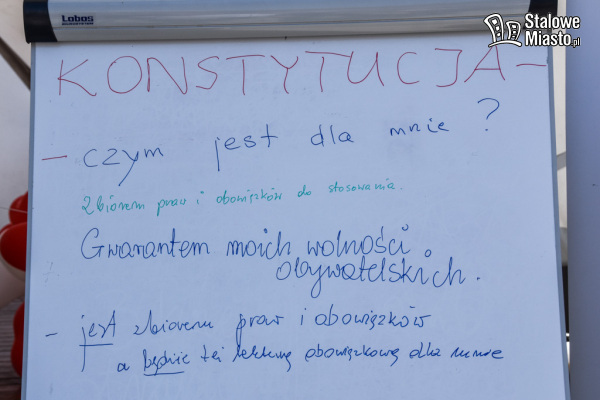 Lobos
Stalowe
Miasto.pl
KONSTYTUCJA -
- czym jest dla mnie?
Zbiorem praw i obowiązków do stosowania.
Gwarantem moich wolności
obywatelskich.
- jest zbiorem praw i obowiązków
a będzie też lekturą obowiązkową dla mnie